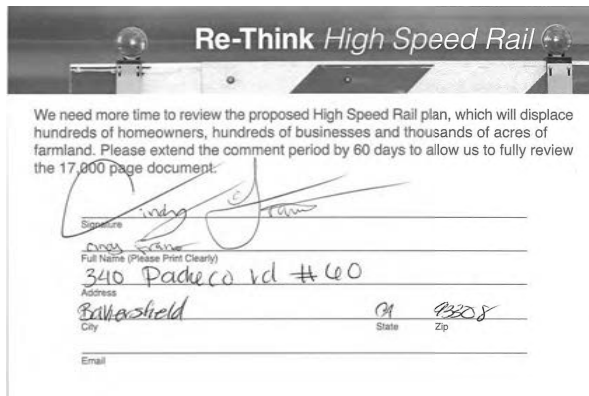 Re-Think High Speed Rail
We need more time to review the proposed High Speed Rail plan, which will displace
hundreds of homeowners, hundreds of businesses and thousands of acres of
farmland. Please extend the comment period by 60 days to allow us to fully review
the 17,000 page document.
Cindy
Signature
Full Name (Please Print Clearly)
340 Pacheco rd # 60
Address
Bakersfield CA 93308
City State Zip
Email